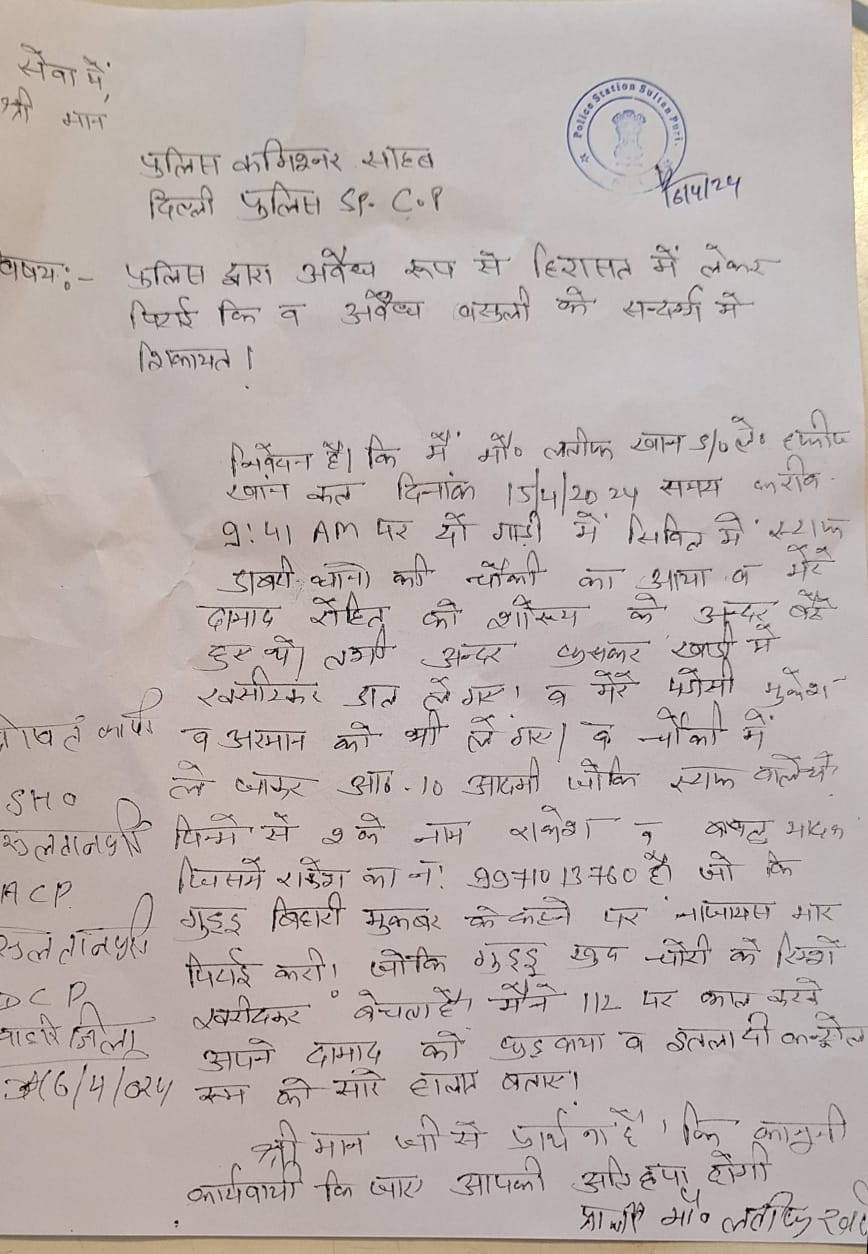 सेवा में,
श्री मान
Police Station Sultan Puri.
16/4/24
पुलिस कमिश्नर साहब
दिल्ली पुलिस SP. C.P
विषय:- पुलिस द्वारा अवैध रूप से हिरासत में लेकर
पिटाई कि व अवैध वसुली के सन्दर्भ मे
शिकायत।
निवेदन है। कि मैं मौ० लतीफ खान S/o ले०
खान कल दिनांक 15/4/2024 समय करीब
9:41 AM पर दो गाड़ी में सिविल में स्टाफ
डाबरी थाने की चौकी का आया व मेरे
दामाद रोहित को के अन्दर बैठे
हुए थे। तभी अन्दर घुसकर गाड़ी में
डाल ले गए। व मेरे पडोसी मुकेश
व अरमान को भी ले गए। व चौकी में
ले जाकर आठ-10 आदमी जोकि स्टाफ वाले थे
जिनमे से 2 के नाम राकेश व
जिसमें राकेश का नं. 9971013760 है जो कि
गुड्डु बिहारी मुकबर के कहने पर नाजायस मार
पिटाई करी। जोकि गुड्डु खुद चोरी के रिक्शे
खरीदकर बेचता है। मैंने 112 पर काल करके
अपने दामाद को छुडवाया व इतला दी कन्ट्रोल
रूम को सारे हालात बताए।
श्री मान जी से प्रार्थना है। कि कानुनी
कार्यवायी कि जाए आपकी अति कृपा होगी
प्रार्थी मौ० लतीफ खान
कापी
SHO
सुलतानपुरी
ACP
सुलतानपुरी
DCP
बाहरी जिला
16/4/024